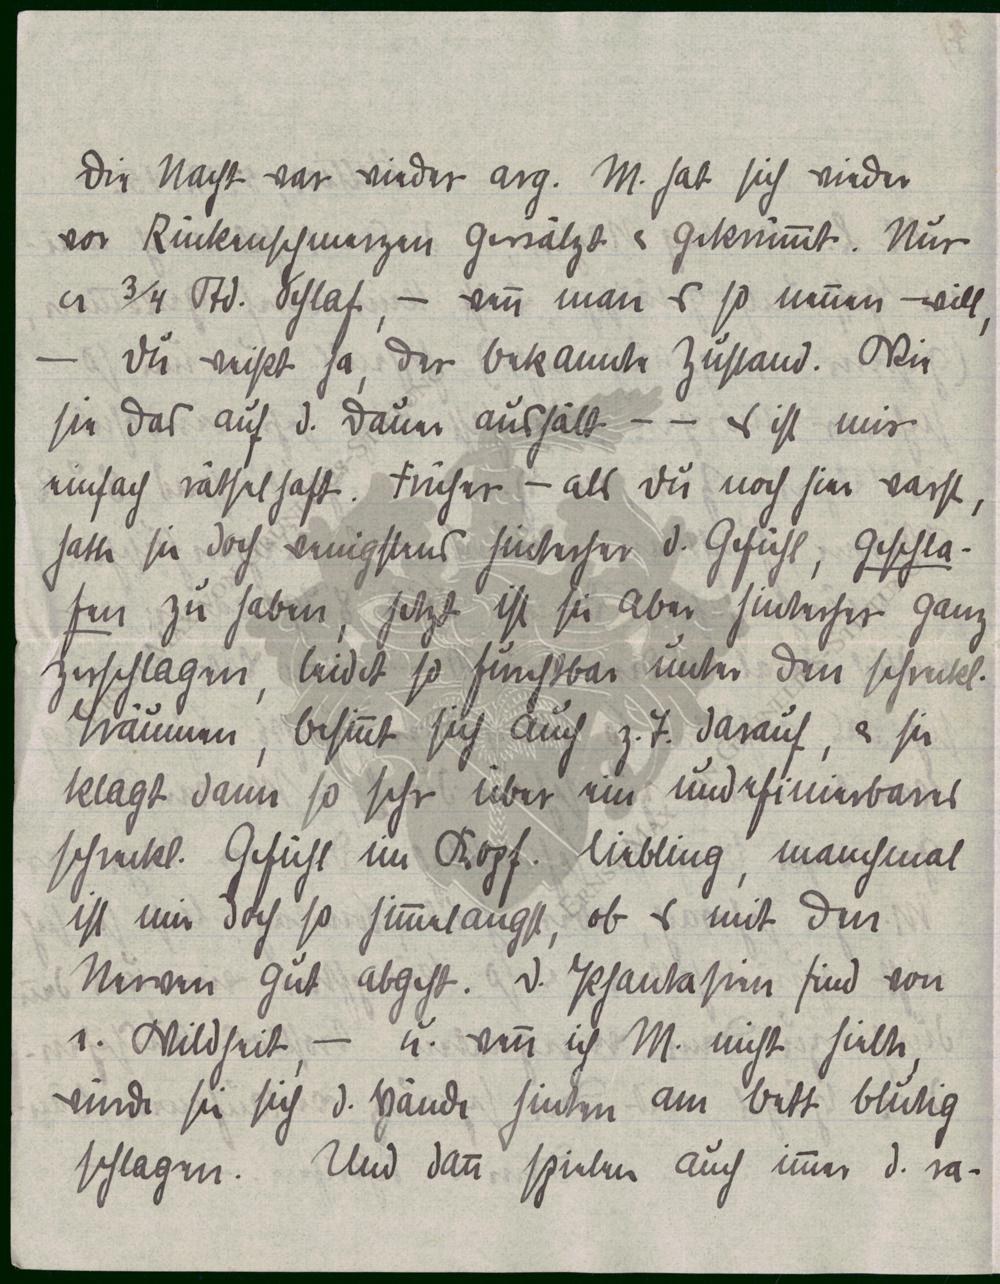 Die Nacht war wieder arg. M. hat sich wieder
vor Rückenschmerzen gewälzt & gekrüm̅t. Nur
ca 3/4 Std. Schlaf, — wen̅ man es so nen̅en will,
— Du weißt ja, der bekannte Zustand. Wie
sie das auf d. Dauer aushält — — es ist mir
einfach rätselhaft. Früher — als Du noch hier warst,
hatte sie doch wenigstens hinterher d. Gefühl, geschla-
fen zu haben, jetzt ist sie aber hinterher ganz
zerschlagen, leidet so furchtbar unter den schreckl.
Träumen, besin̅t sich auch z. T. darauf, & sie
klagt dann so sehr über ein undefinierbares
schreckl. Gefühl im Kopf. Liebling, manchmal
ist mir doch so him̅elangst, ob es mit den
Nerven gut abgeht. D. Phantasien sind von
e. Wildheit, — u. wen̅ ich M. nicht hielte,
würde sie sich d. Hände hinten am Bett blutig
schlagen. Und dan̅ spielen auch im̅er d. ra-